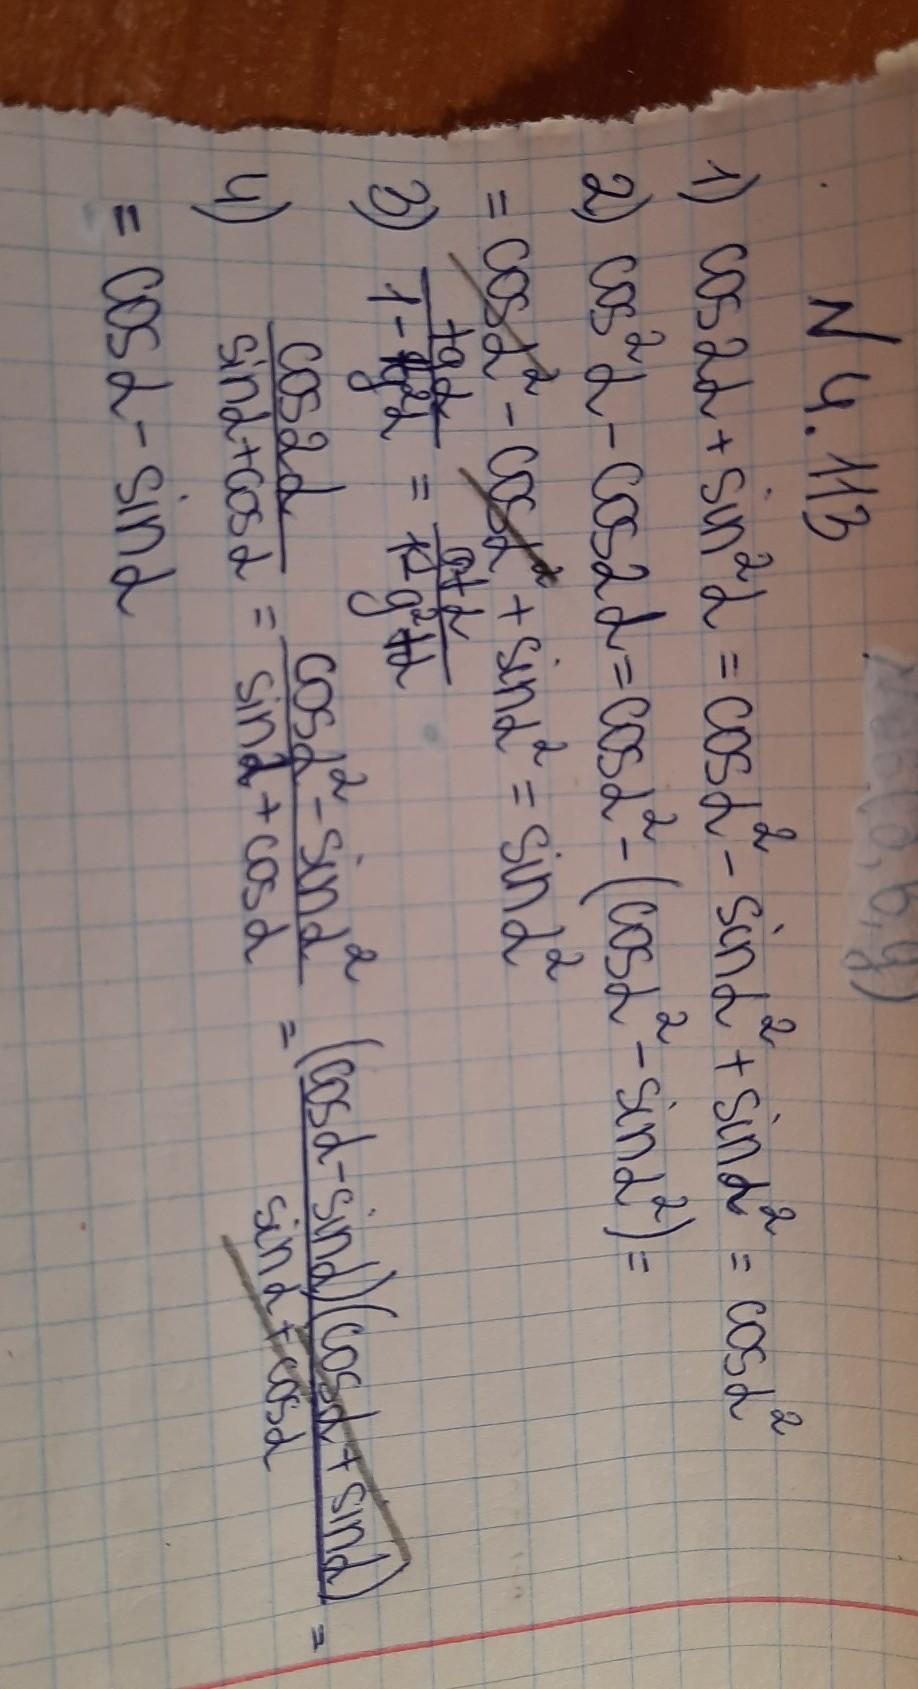 N 4.113
1) cos2α + sin²α = cosα² - sinα² + sinα² = cosα²
2) cos²α - cos2α = cosα² - (cosα² - sinα²) =
= cosα² - cosα² + sinα² = sinα²
3) tgα / 1 - tg²α =
4) cos2α / sinα + cosα = cosα² - sinα² / sinα + cosα = (cosα - sinα)(cosα + sinα) / sinα + cosα =
= cosα - sinα